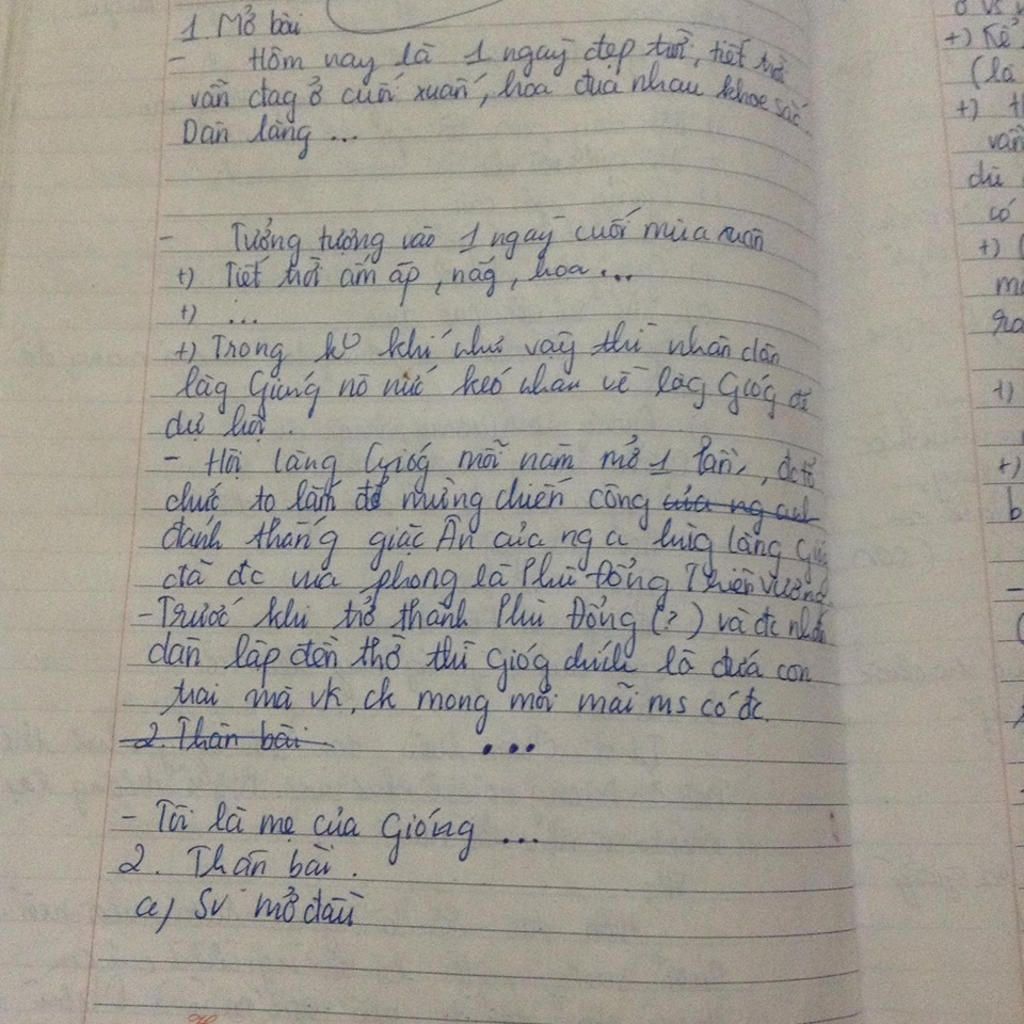 1. Mở bài
- Hôm nay là 1 ngày đẹp trời, tiết trời
vẫn đag ở cuối xuân, hoa đua nhau khoe sắc.
Dân làng ...
- Tưởng tượng vào 1 ngày cuối mùa xuân
+) Tiết trời ấm áp, nắg, hoa ...
+) ...
+) Trong ko khí như vậy thì nhân dân
làg Gióng nô nức kéo nhau về làg Gióg để
dự hội.
- Hội làng Gióg mỗi năm mở 1 lần, đc tổ
chức to lắm để mừng chiến công của ng anh
đánh thắng giặc Ân của ng a hùg làng Gióg
đã đc vua phong là Phù Đổng Thiên Vương
- Trước khi trở thành Phù Đổng (?) và đc nhân
dân lập đền thờ thì Gióg chính là đứa con
trai mà vk, ck mong mỏi mãi ms có đc.
2. Thân bài
...
- Tôi là mẹ của Gióng ...
2. Thân bài.
a) Sv mở đầu
+) Kể
(là
+)
dù
có
+) (
+)
+)
b
-
(